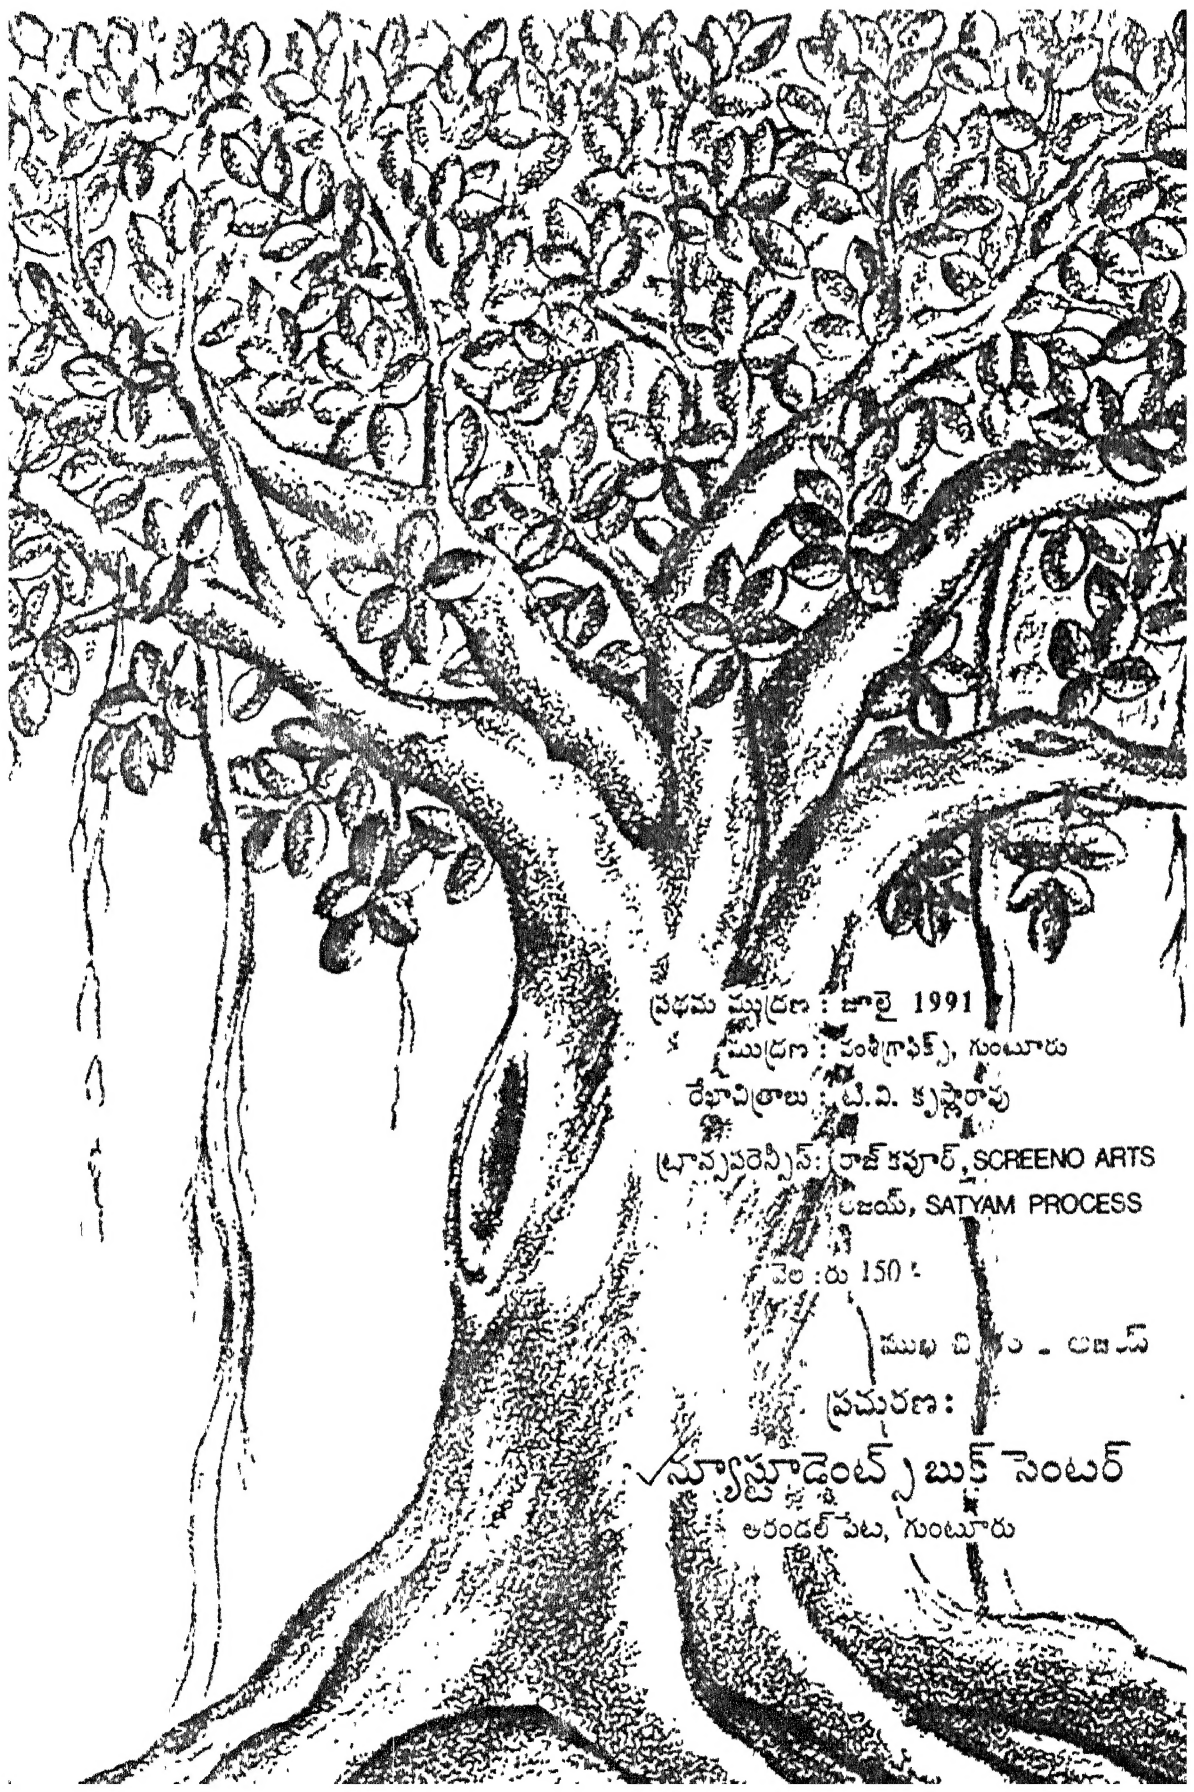 ప్రథమ ముద్రణ : జూలై 1991
ముద్రణ : వంశీగ్రాఫిక్స్, గుంటూరు
రేఖాచిత్రాలు : టి.వి. కృష్ణారావు
ట్రాన్సపరెన్సీస్: రాజ్‌కపూర్, SCREENO ARTS
SATYAM PROCESS
వెల :రు 150
ముఖ
ప్రచురణ:
న్యూస్టూడెంట్స్ బుక్ సెంటర్
అరండల్ పేట, గుంటూరు